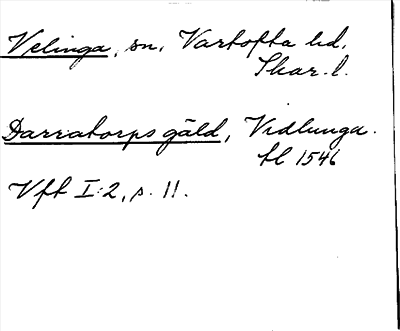 Velinga, sn, Vartofta hd.
Skar. l.
Darratorps gäld, Vidlunga.
tl 1546
Vft I:2, s. 11.